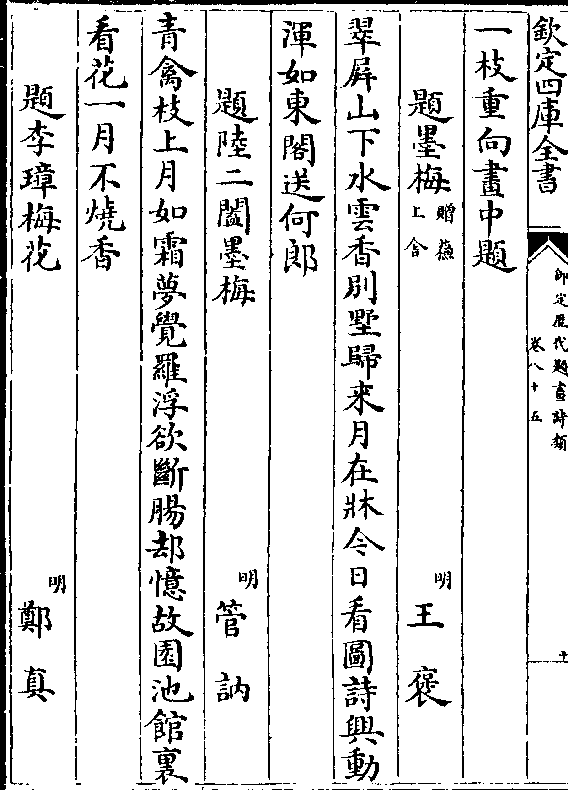 欽定四庫全書
御定歷代題畫詩類
卷八十五
十
一枝重向畫中題
題墨梅贈蘓上舍
明王褒
翠屏山下水雲香別墅歸来月在牀今日看圖詩興動
渾如東閣送何郎
題陸二闓墨梅
明管訥
青禽枝上月如霜夢覺羅浮欲斷腸却憶故園池館裏
看花一月不燒香
題李璋梅花
明鄭真